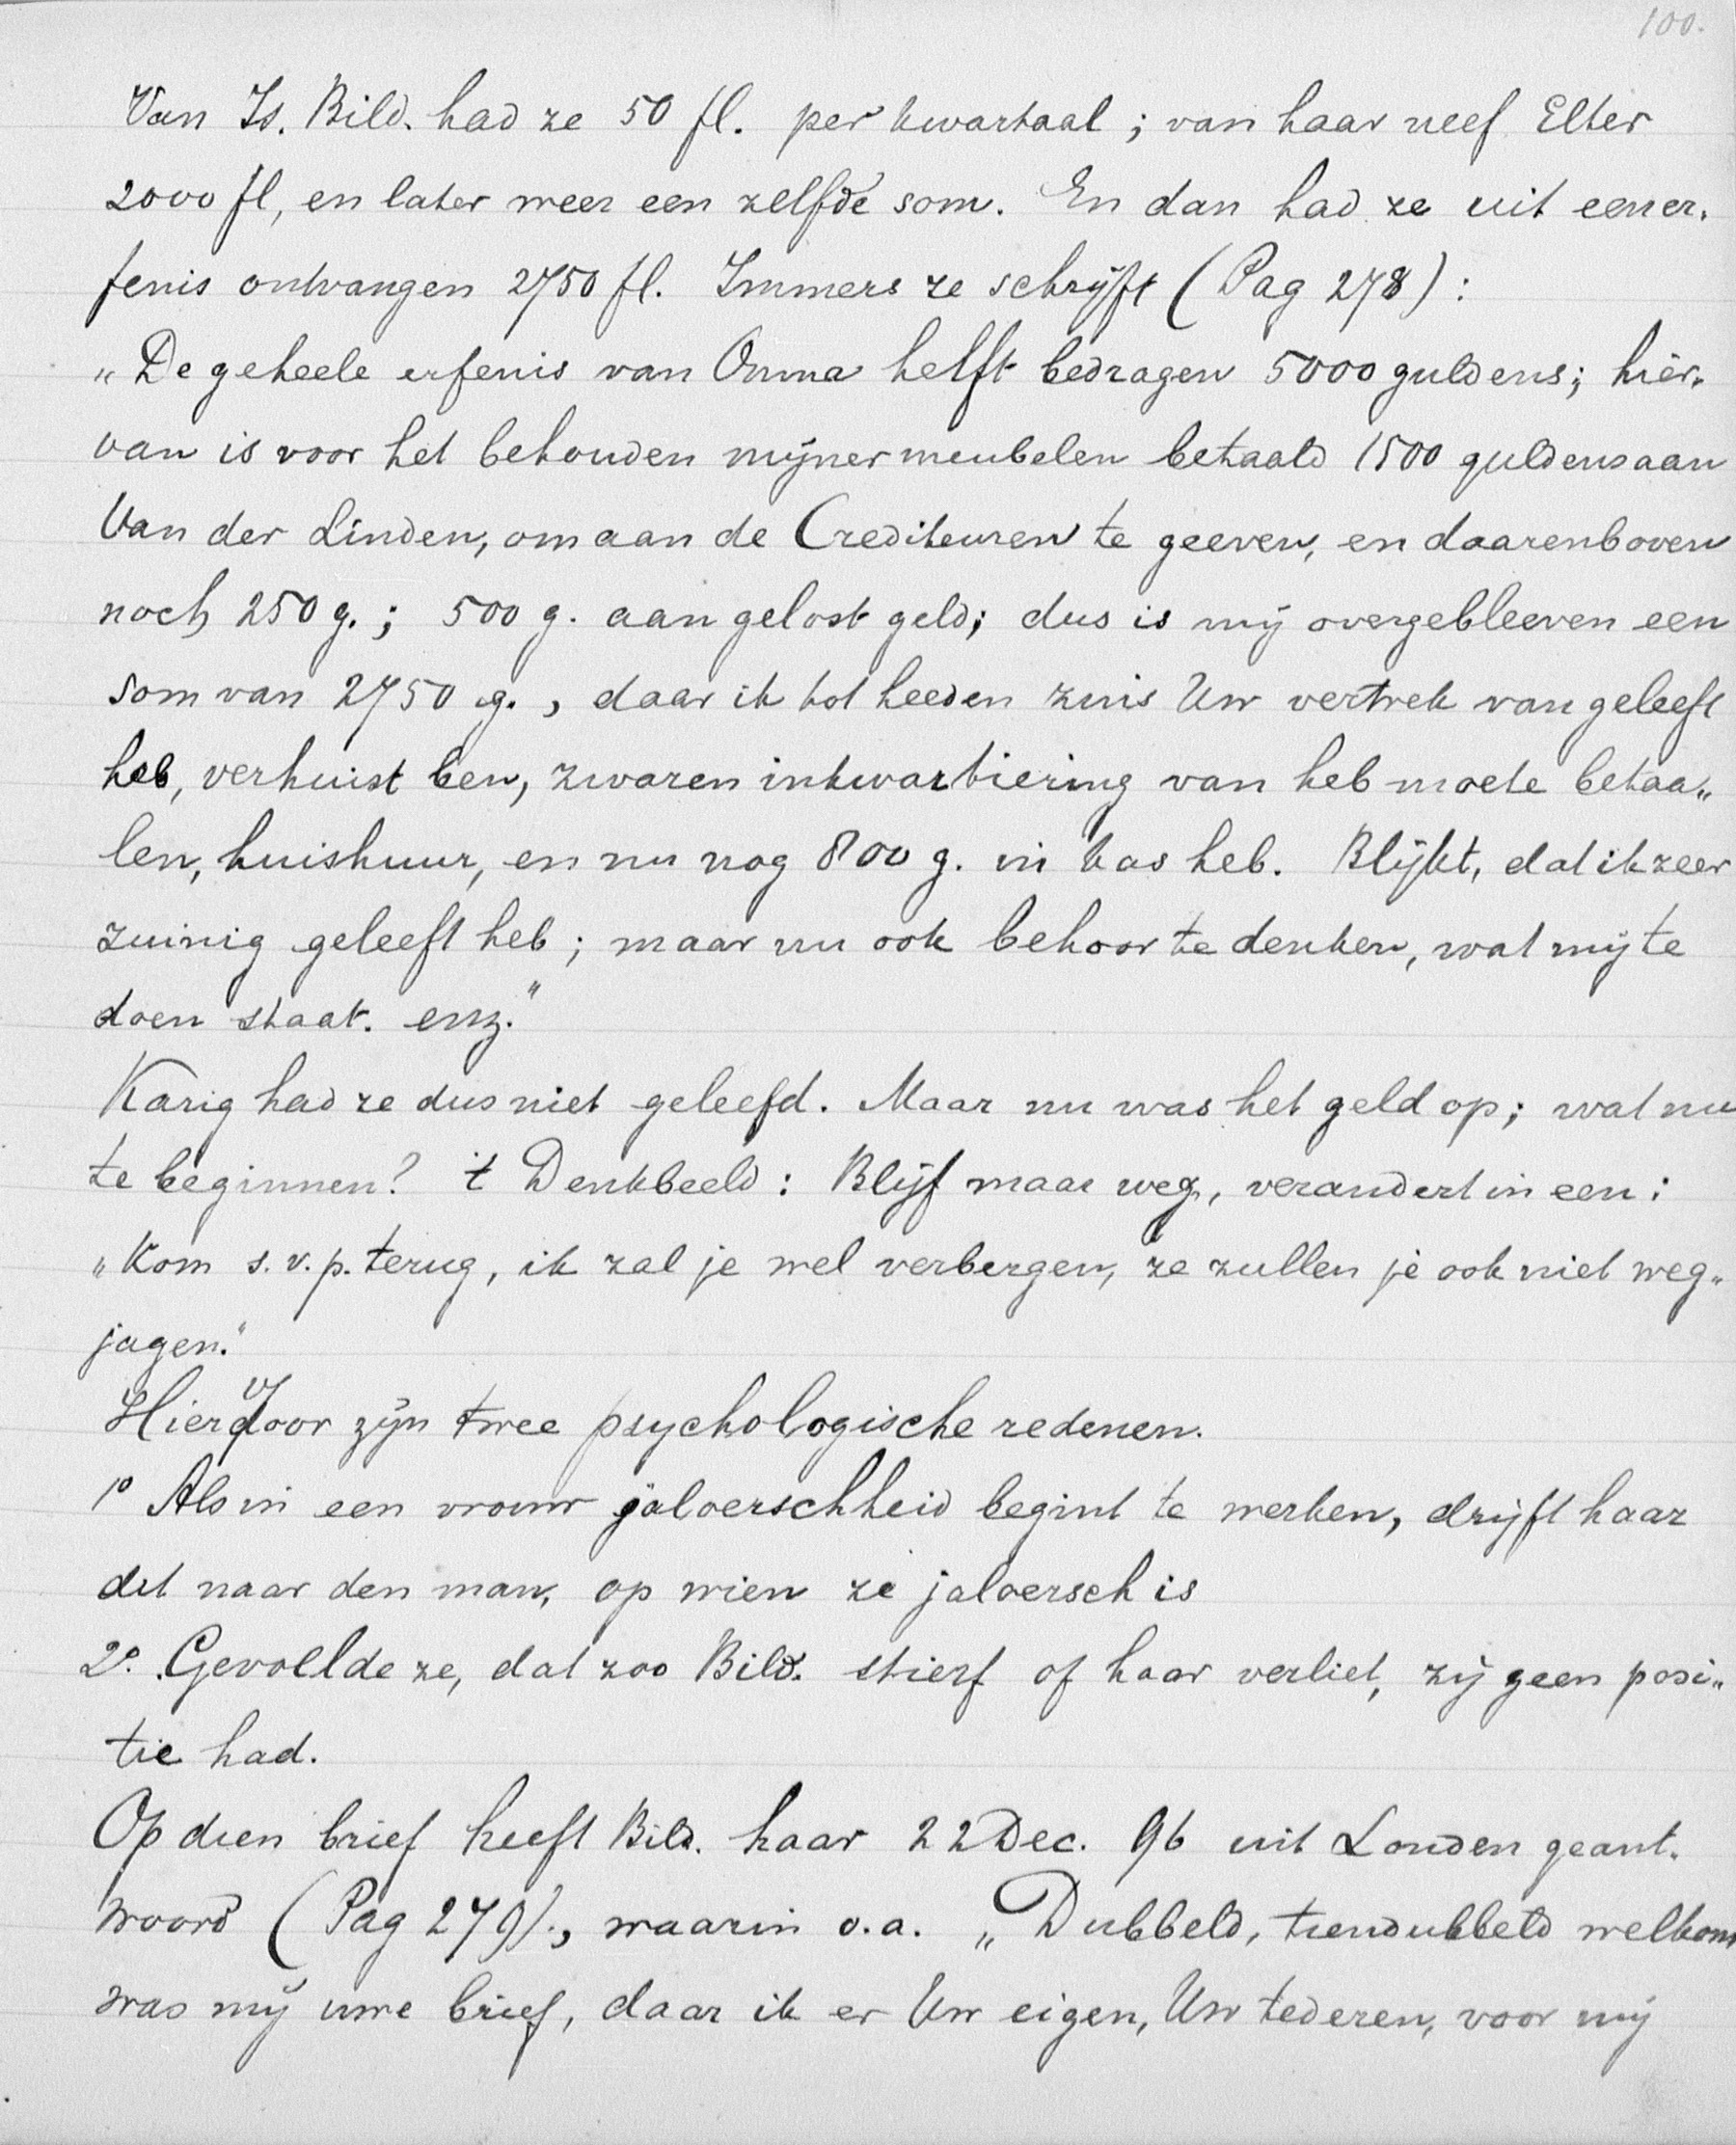 100.
Van Is. Bild. had ze 50 fl. per kwartaal; van haar neef Elter
2000 fl, en later weer een zelfde som. En dan had ze uit een er-
fenis ontvangen 2750 fl. Immers ze schrijft (Pag 278):
„De geheele erfenis van Omma helft bedragen 5000 guldens; hier-
van is voor het behouden mijner meubelen betaald 1500 guldens aan
Van der Linden, om aan de Crediteuren te geeven, en daarenboven
noch 250 g.; 500 g. aan gelost geld; dus is mij overgebleeven een
som van 2750 g., daar ik tot heeden zins Uw vertrek van geleeft
heb, verhuist ben, zwaren inkwartiering van heb moete betaa„
len, huishuur, en nu nog 800 g. in kas heb. Blijkt, dat ik zeer
zuinig geleeft heb; maar nu ook behoor te denken, wat mij te
doen staat. enz."
Karig had ze dus niet geleefd. Maar nu was het geld op; wat nu
te beginnen? 't Denkbeeld: Blijf maar weg, verandert in een:
„Kom s.v.p. terug, ik zal je wel verbergen, ze zullen je ook niet weg„
jagen."
Hiervoor zijn twee psychologische redenen.
1º Als in een vrouw jaloerschheid begint te werken, drijft haar
dit naar den man, op wien ze jaloersch is
2º. Gevoelde ze, dat zoo Bild. stierf of haar verliet, zij geen posi„
tie had.
Op dien brief heeft Bild. haar 22 Dec. 96 uit Londen geant-
woord (Pag 279)., waarin o.a. „Dubbeld, tiendubbeld welkom
was mij uwe brief, daar ik er Uw eigen, Uw tederen, voor mij